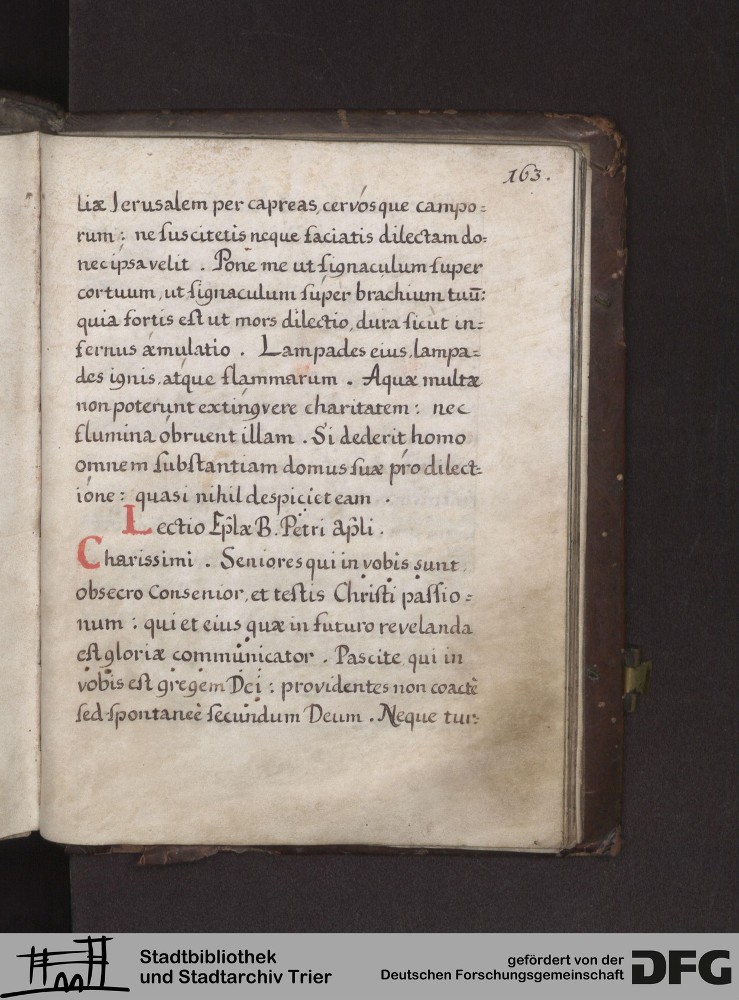 163.
liæ Jerusalem per capreas, cervósque campo=
rum : ne suscitetis neque faciatis dilectam do=
nec ipsa velit . Pone me ut signaculum super
cor tuum, ut signaculum súper brachium tuū:
quia fortis est ut mors dilectio, dura sicut in=
fernus æmulatio . Lampades eius, lampa=
des ignis, atque flammarum . Aquæ multæ
non poterunt extingvere charitatem : nec
flumina óbruent illam . Si dederit homo
omnem substantiam domus suæ pro dilect=
ióne : quasi nihil despiciet eam .
Lectio Ep̄læ B. Petri Ap̄li .
Charissimi . Seniores qui in vobis sunt,
obsecro Consenior, et testis Christi passio=
num : qui et eius quæ in futuro revelanda
est gloriæ communicator . Pascite, qui in
vobis est gregem Dei : providentes non coactè
sed spontaneè secundum Deum . Neque tur=
Stadtbibliothek
und Stadtarchiv Trier
gefördert von der
Deutschen Forschungsgemeinschaft
DFG